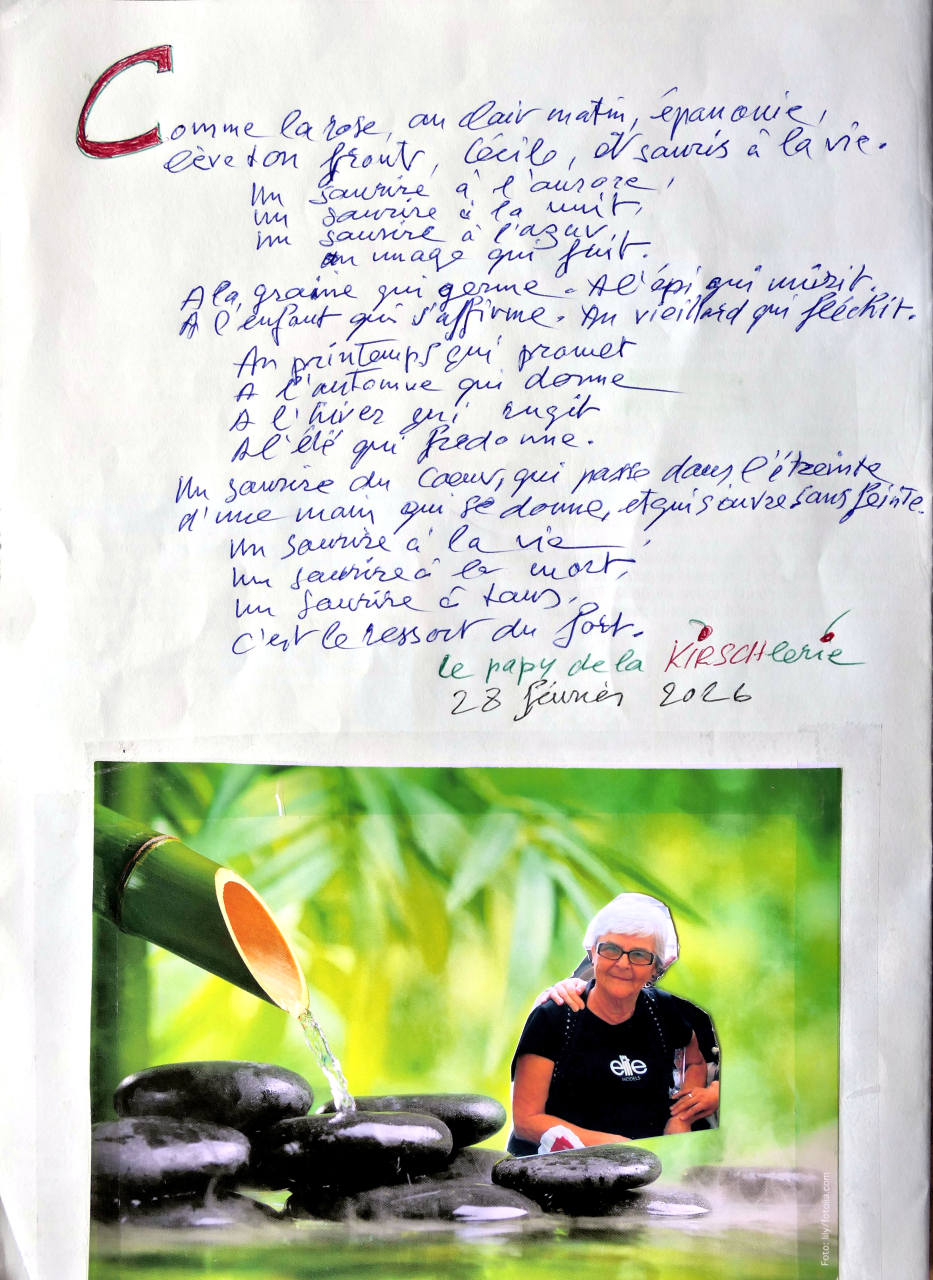 Comme la rose, au clair matin, épanouie,
lève ton front, Cécile, et souris à la vie.
Un sourire à l'aurore,
un sourire à la nuit,
un sourire à l'azur,
au nuage qui fuit.
A la graine qui germe. A l'épi qui mûrit.
A l'enfant qui s'affirme. Au vieillard qui fléchit.
Au printemps qui promet
A l'automne qui donne
A l'hiver qui rugit
A l'été qui fredonne.
Un sourire du Coeur, qui passe dans l'étreinte
d'une main qui se donne, et qui s'ouvre sans feinte.
Un sourire à la vie,
un sourire à la mort,
un sourire à tous,
c'est le ressort du fort.
le papy de la KIRSCHlerie
28 février 2026
elite
MODELS
Foto: lily/fotolia.com